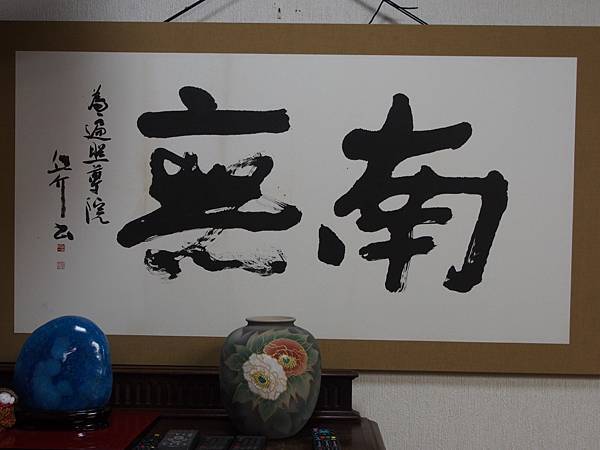 南無
為遍照尊院